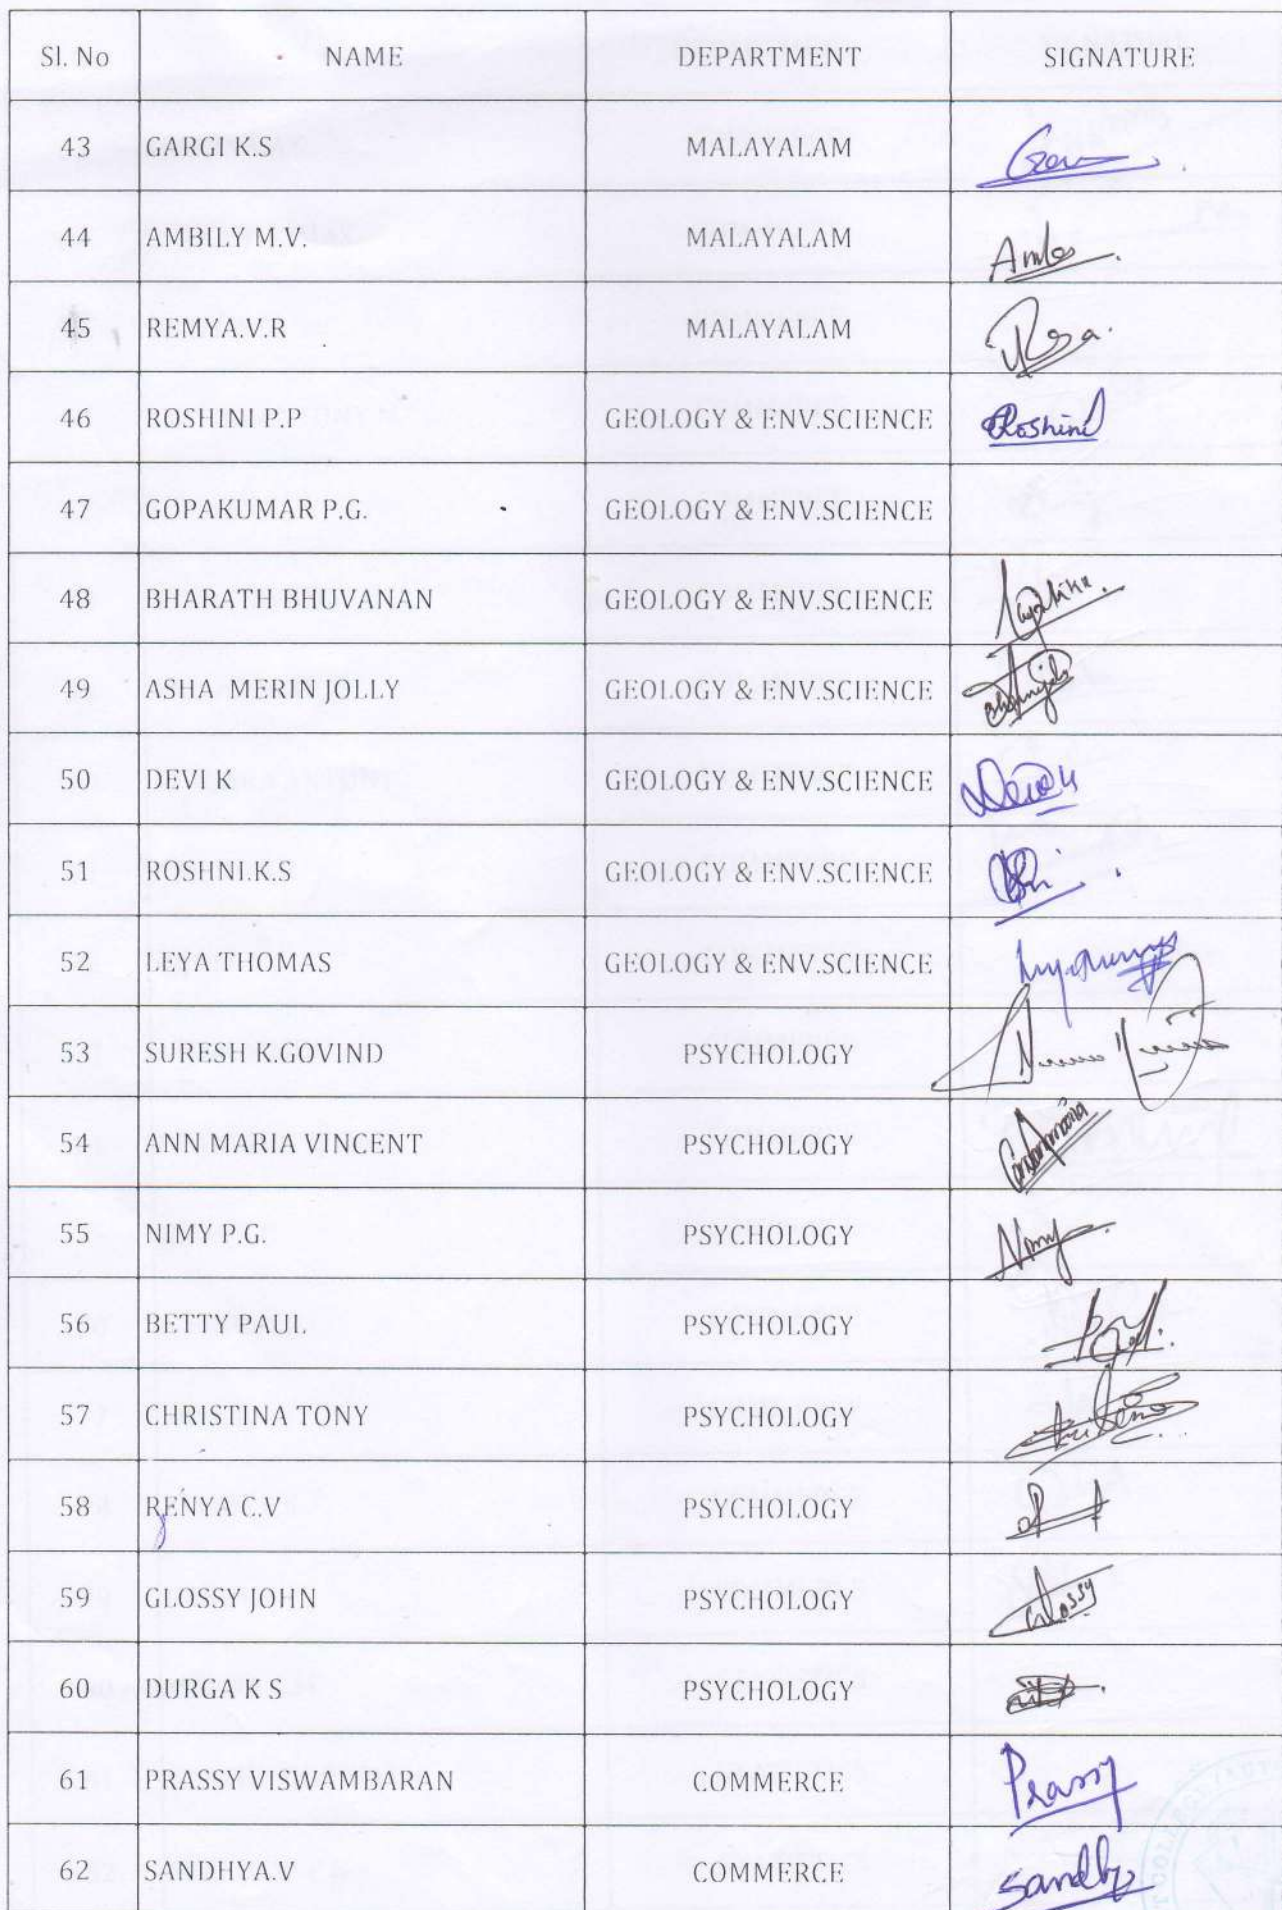 Sl. No NAME DEPARTMENT SIGNATURE
43 GARGI K.S MALAYALAM
44 AMBILY M.V. MALAYALAM
45 REMYA.V.R MALAYALAM
46 ROSHINI P.P GEOLOGY & ENV.SCIENCE Roshini
47 GOPAKUMAR P.G. GEOLOGY & ENV.SCIENCE
48 BHARATH BHUVANAN GEOLOGY & ENV.SCIENCE
49 ASHA MERIN JOLLY GEOLOGY & ENV.SCIENCE
50 DEVI K GEOLOGY & ENV.SCIENCE
51 ROSHNI.K.S GEOLOGY & ENV.SCIENCE
52 LEYA THOMAS GEOLOGY & ENV.SCIENCE
53 SURESH K.GOVIND PSYCHOLOGY
54 ANN MARIA VINCENT PSYCHOLOGY
55 NIMY P.G. PSYCHOLOGY
56 BETTY PAUL PSYCHOLOGY
57 CHRISTINA TONY PSYCHOLOGY
58 RENYA C.V PSYCHOLOGY
59 GLOSSY JOHN PSYCHOLOGY Glossy
60 DURGA K S PSYCHOLOGY
61 PRASSY VISWAMBARAN COMMERCE Prassy
62 SANDHYA.V COMMERCE Sandhy